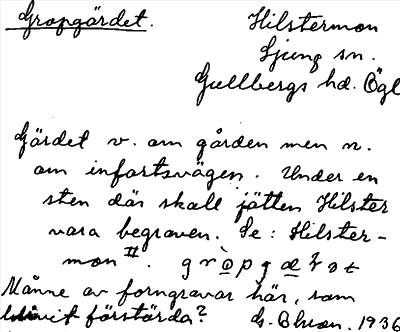 Gropgärdet. Hilstermon
Ljung sn.
Gullbergs hd. Ögl
Gärdet v. om gården men n.
om infartsvägen. Under en
sten där skall jätten Hilster
vara begraven. Se: Hilster-
mon II.
Månne av forngravar här, som
blivit förstörda? 1936